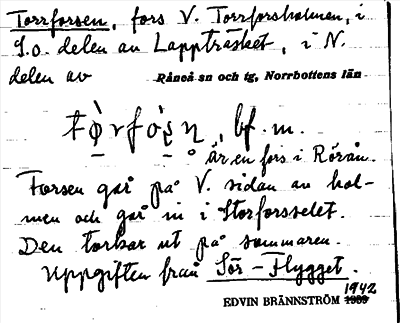 Torrforsen, fors V. Torrforsholmen, i
S.o. delen av Lappträsket, i N.
delen av Råneå sn och tg, Norrbottens län
bf. m.
Är en fors i Rörån.
Forsen går på V. sidan av hol-
men och går in i Storforsselet.
Den torkar ut på sommaren.
Uppgiften från Sör-Flygget.
1942
EDVIN BRÄNNSTRÖM 1939